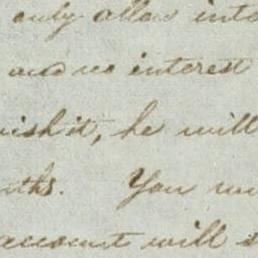 only allow inte
and no interest
wish it, he will
nths. You
account will s